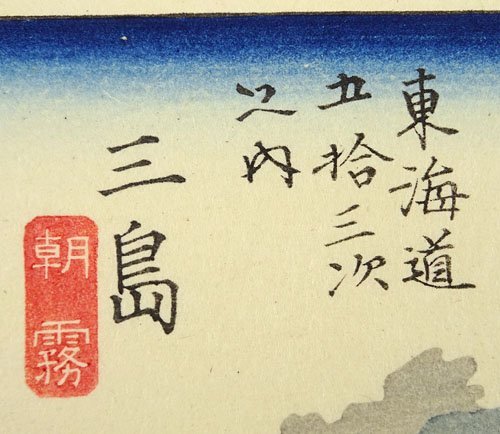 東海道
五拾三次
之内
三島
朝霧